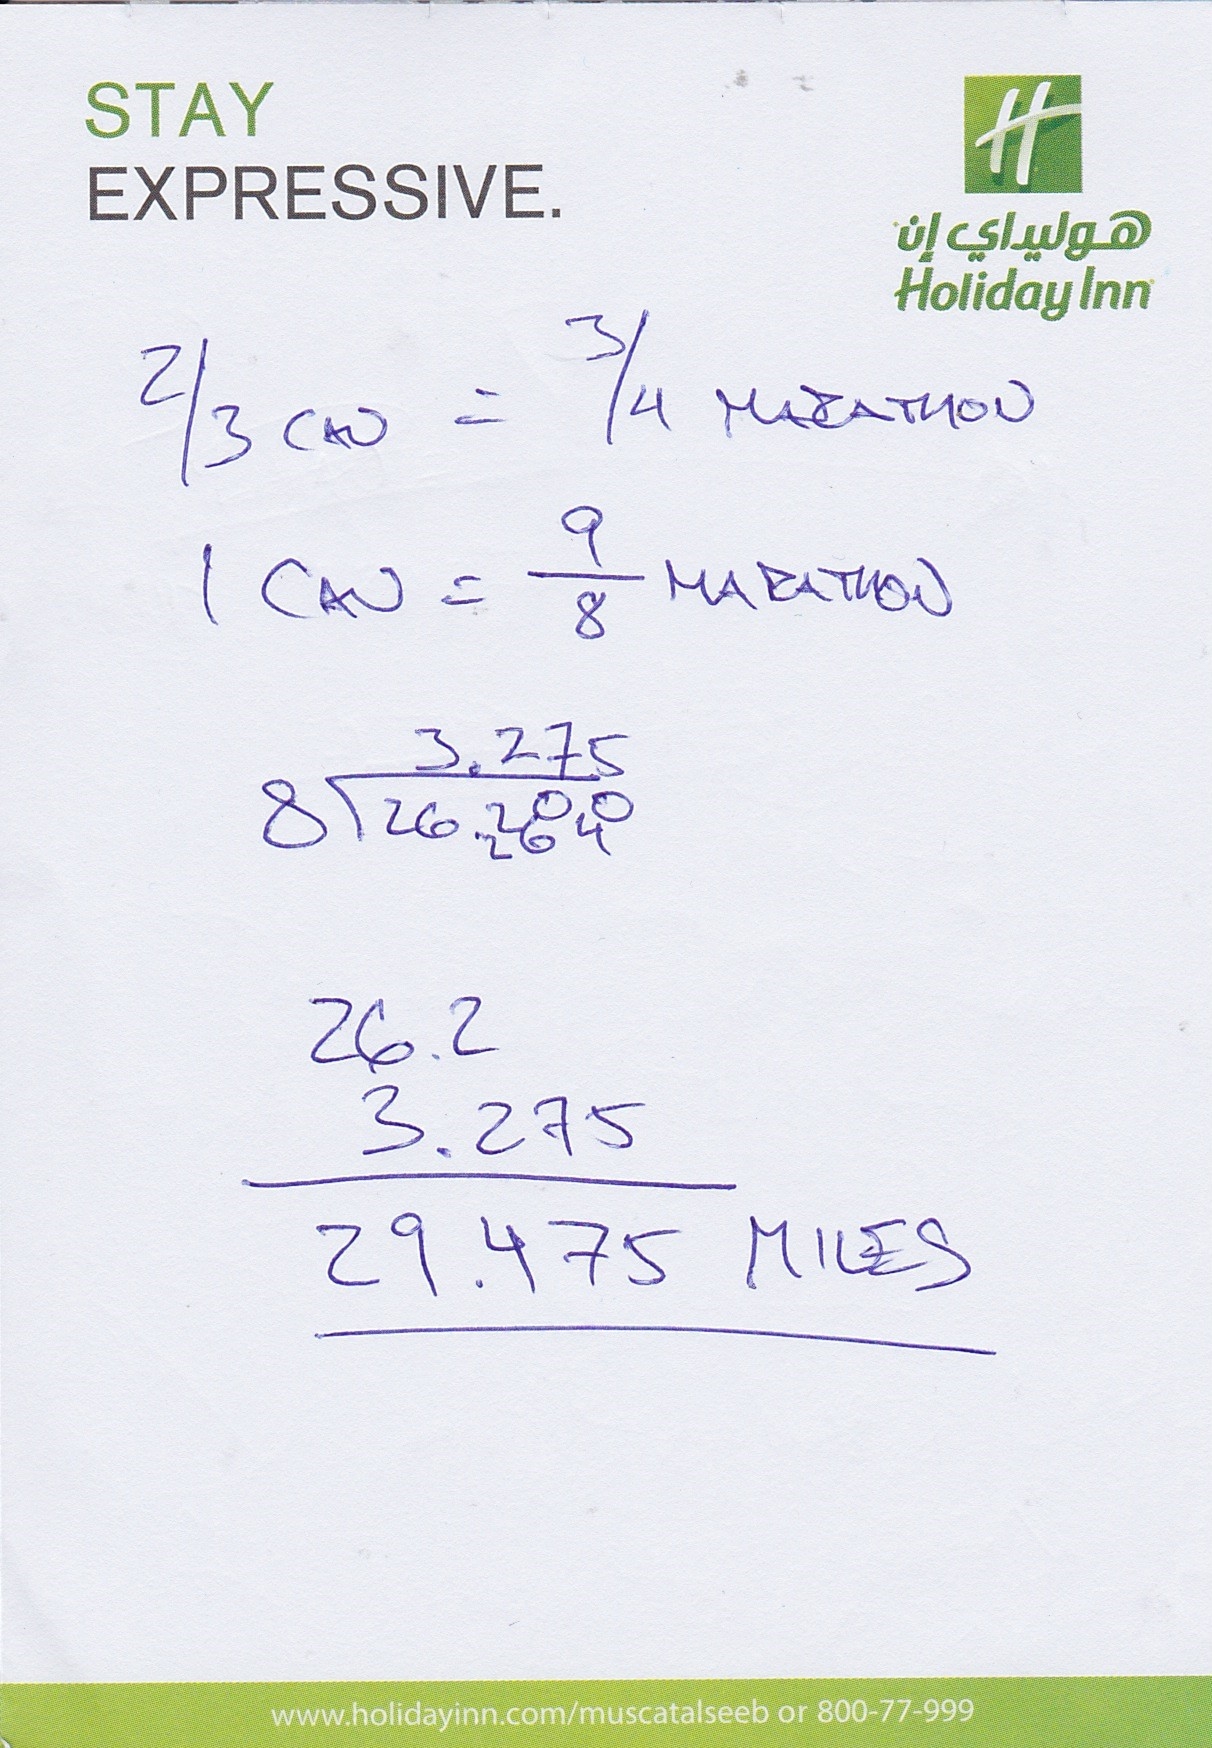 STAY
EXPRESSIVE.
هوليداي إن
Holiday Inn
2/3 CAN = 3/4 MARATHON
1 CAN = 9/8 MARATHON
3.275
8 26.2 0 0
2 6 4
26.2
3.275
29.475 MILES
www.holidayinn.com/muscatalseeb or 800-77-999